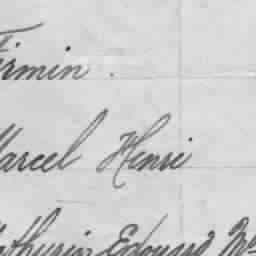 Firmin.
Marcel Henri
Mathurin Edouard M